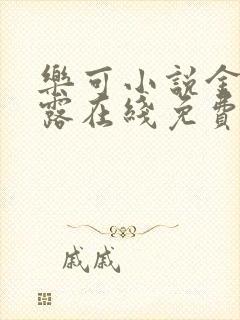 樂可小說金
露在綫免費
戚戚